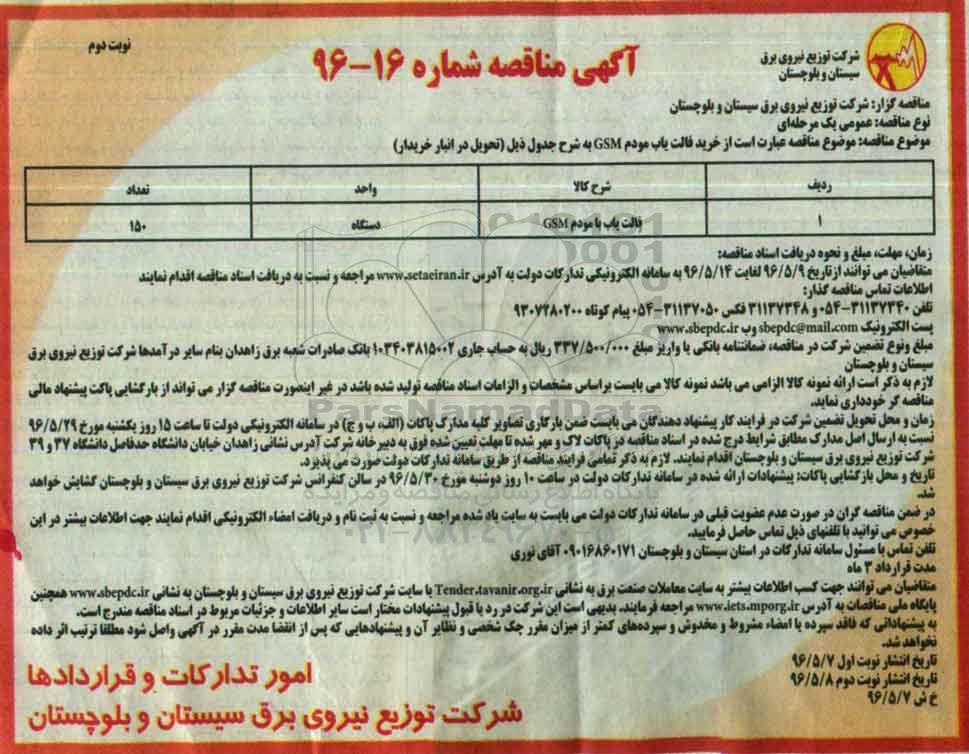 شرکت توزیع نیروی برق
سیستان و بلوچستان
آگهی مناقصه شماره ۱۶-۹۶
نوبت دوم
مناقصه گزار: شرکت توزیع نیروی برق سیستان و بلوچستان
نوع مناقصه: عمومی یک مرحله‌ای
موضوع مناقصه: موضوع مناقصه عبارت است از خرید فالت یاب مودم GSM به شرح جدول ذیل (تحویل در انبار خریدار)
ردیف شرح کالا واحد تعداد
۱ فالت یاب با مودم GSM دستگاه ۱۵۰
زمان، مهلت، مبلغ و نحوه دریافت اسناد مناقصه:
متقاضیان می توانند از تاریخ ۹۶/۵/۹ لغایت ۹۶/۵/۱۴ به سامانه الکترونیکی تدارکات دولت به آدرس www.setaeiran.ir مراجعه و نسبت به دریافت اسناد مناقصه اقدام نمایند
اطلاعات تماس مناقصه گذار:
تلفن ۳۱۱۳۷۳۴۰-۰۵۴ و ۳۱۱۳۷۳۴۸ فکس ۳۱۱۳۷۰۵۰-۰۵۴ پیام کوتاه ۹۳۰۷۲۸۰۲۰۰
پست الکترونیک sbepdc@mail.com وب www.sbepdc.ir
مبلغ ونوع تضمین شرکت در مناقصه، ضمانتنامه بانکی یا واریز مبلغ ۳۳۷/۵۰۰/۰۰۰ ریال به حساب جاری ۱۰۳۴۰۳۸۱۵۰۰۲ بانک صادرات شعبه برق زاهدان بنام سایر درآمدها شرکت توزیع نیروی برق
سیستان و بلوچستان
لازم به ذکر است ارائه نمونه کالا الزامی می باشد نمونه کالا می بایست براساس مشخصات و الزامات اسناد مناقصه تولید شده باشد در غیر اینصورت مناقصه گزار می تواند از بازگشایی پاکت پیشنهاد مالی
مناقصه گر خودداری نماید.
زمان و محل تحویل تضمین شرکت در فرایند کار پیشنهاد دهندگان می بایست ضمن بارگاری تصاویر کلیه مدارک پاکات (الف، ب و ج) در سامانه الکترونیکی دولت تا ساعت ۱۵ روز یکشنبه مورخ ۹۶/۵/۲۹
نسبت به ارسال اصل مدارک مطابق شرایط درج شده در اسناد مناقصه در پاکات لاک و مهر شده تا مهلت تعیین شده فوق به دبیرخانه شرکت آدرس نشانی زاهدان خیابان دانشگاه حدفاصل دانشگاه ۳۷ و ۳۹
شرکت توزیع نیروی برق سیستان و بلوچستان اقدام نمایند. لازم به ذکر تمامی فرایند مناقصه از طریق سامانه تدارکات دولت صورت می پذیرد.
تاریخ و محل بازگشایی پاکات: پیشنهادات ارائه شده در سامانه تدارکات دولت در ساعت ۱۰ روز دوشنبه مورخ ۹۶/۵/۳۰ در سالن کنفرانس شرکت توزیع نیروی برق سیستان و بلوچستان گشایش خواهد
شد.
در ضمن مناقصه گران در صورت عدم عضویت قبلی در سامانه تدارکات دولت می بایست به سایت یاد شده مراجعه و نسبت به ثبت نام و دریافت امضاء الکترونیکی اقدام نمایند جهت اطلاعات بیشتر در این
خصوص می توانید با تلفنهای ذیل تماس حاصل فرمایید.
تلفن تماس با مسئول سامانه تدارکات در استان سیستان و بلوچستان ۰۹۰۱۶۸۶۰۱۷۱ آقای نوری
مدت قرارداد ۳ ماه
متقاضیان می توانند جهت کسب اطلاعات بیشتر به سایت معاملات صنعت برق به نشانی Tender.tavanir.org.ir یا سایت شرکت توزیع نیروی برق سیستان و بلوچستان به نشانی www.sbepdc.ir همچنین
پایگاه ملی مناقصات به آدرس www.iets.mporg.ir مراجعه فرمایند. بدیهی است این شرکت در رد یا قبول پیشنهادات مختار است سایر اطلاعات و جزئیات مربوط در اسناد مناقصه مندرج است.
به پیشنهاداتی که فاقد سپرده یا امضاء مشروط و مخدوش و سپرده‌های کمتر از میزان مقرر چک شخصی و نظایر آن و پیشنهادهایی که پس از انقضا مدت مقرر در آگهی واصل شود مطلقا ترتیب اثر داده
نخواهد شد.
تاریخ انتشار نوبت اول ۹۶/۵/۷
تاریخ انتشار نوبت دوم ۹۶/۵/۸
خ ش ۹۶/۵/۷
امور تدارکات و قراردادها
شرکت توزیع نیروی برق سیستان و بلوچستان
ParsNamadData
پایگاه اطلاع رسانی مناقصه و مزایده